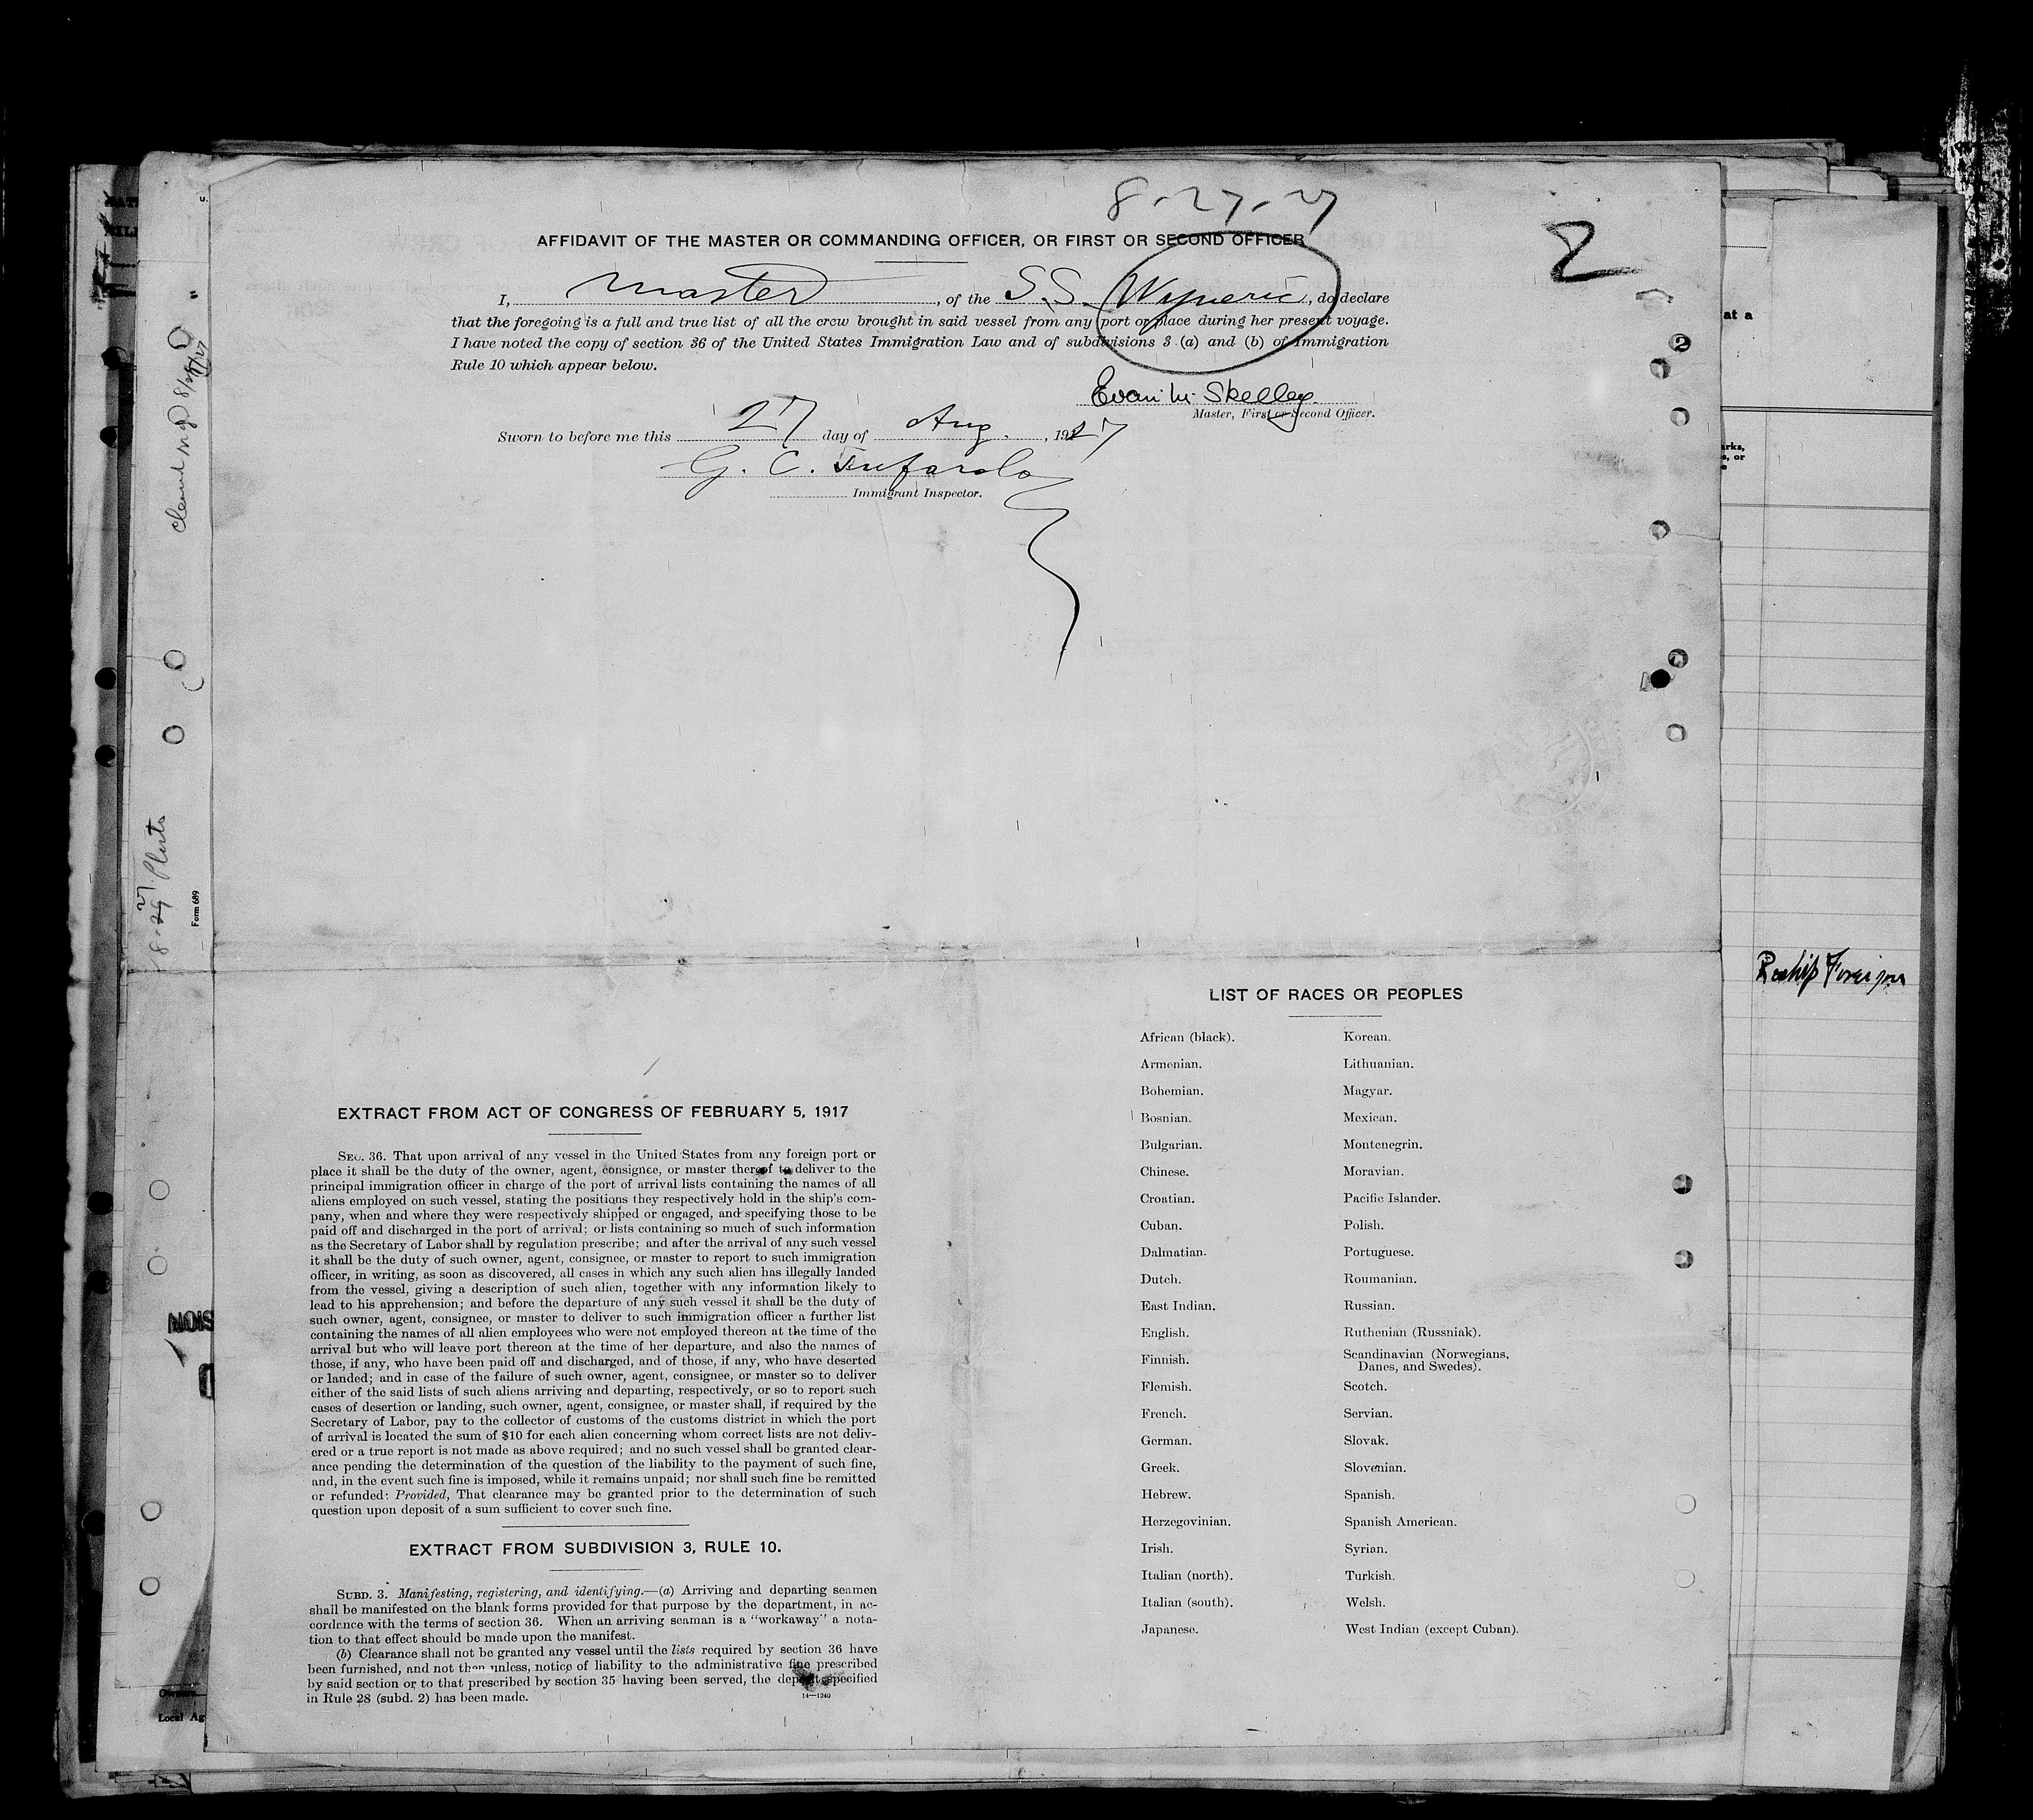 8-27-27
2
AFFIDAVIT OF THE MASTER OR COMMANDING OFFICER, OR FIRST OR SECOND OFFICER
I, master, of the S.S. Wyneric, do declare
that the foregoing is a full and true list of all the crew brought in said vessel from any port or place during her present voyage.
I have noted the copy of section 36 of the United States Immigration Law and of subdivisions 3 (a) and (b) of Immigration
Rule 10 which appear below.
Skelley
Master, First or Second Officer.
Sworn to before me this 27 day of Aug., 1927
G. C.
Immigrant Inspector.
EXTRACT FROM ACT OF CONGRESS OF FEBRUARY 5, 1917
SEC. 36. That upon arrival of any vessel in the United States from any foreign port or
place it shall be the duty of the owner, agent, consignee, or master thereof to deliver to the
principal immigration officer in charge of the port of arrival lists containing the names of all
aliens employed on such vessel, stating the positions they respectively hold in the ship's com-
pany, when and where they were respectively shipped or engaged, and specifying those to be
paid off and discharged in the port of arrival; or lists containing so much of such information
as the Secretary of Labor shall by regulation prescribe; and after the arrival of any such vessel
it shall be the duty of such owner, agent, consignee, or master to report to such immigration
officer, in writing, as soon as discovered, all cases in which any such alien has illegally landed
from the vessel, giving a description of such alien, together with any information likely to
lead to his apprehension; and before the departure of any such vessel it shall be the duty of
such owner, agent, consignee, or master to deliver to such immigration officer a further list
containing the names of all alien employees who were not employed thereon at the time of the
arrival but who will leave port thereon at the time of her departure, and also the names of
those, if any, who have been paid off and discharged, and of those, if any, who have deserted
or landed; and in case of the failure of such owner, agent, consignee, or master so to deliver
either of the said lists of such aliens arriving and departing, respectively, or so to report such
cases of desertion or landing, such owner, agent, consignee, or master shall, if required by the
Secretary of Labor, pay to the collector of customs of the customs district in which the port
of arrival is located the sum of $10 for each alien concerning whom correct lists are not deliv-
ered or a true report is not made as above required; and no such vessel shall be granted clear-
ance pending the determination of the question of the liability to the payment of such fine,
and, in the event such fine is imposed, while it remains unpaid; nor shall such fine be remitted
or refunded: Provided, That clearance may be granted prior to the determination of such
question upon deposit of a sum sufficient to cover such fine.
EXTRACT FROM SUBDIVISION 3, RULE 10.
SUBD. 3. Manifesting, registering, and identifying.—(a) Arriving and departing seamen
shall be manifested on the blank forms provided for that purpose by the department, in ac-
cordance with the terms of section 36. When an arriving seaman is a "workaway" a nota-
tion to that effect should be made upon the manifest.
(b) Clearance shall not be granted any vessel until the lists required by section 36 have
been furnished, and not then unless, notice of liability to the administrative fine prescribed
by said section or to that prescribed by section 35 having been served, the deposit specified
in Rule 28 (subd. 2) has been made.
14—1240
LIST OF RACES OR PEOPLES
African (black).
Armenian.
Bohemian.
Bosnian.
Bulgarian.
Chinese.
Croatian.
Cuban.
Dalmatian.
Dutch.
East Indian.
English.
Finnish.
Flemish.
French.
German.
Greek.
Hebrew.
Herzegovinian.
Irish.
Italian (north).
Italian (south).
Japanese.
Korean.
Lithuanian.
Magyar.
Mexican.
Montenegrin.
Moravian.
Pacific Islander.
Polish.
Portuguese.
Roumanian.
Russian.
Ruthenian (Russniak).
Scandinavian (Norwegians,
Danes, and Swedes).
Scotch.
Servian.
Slovak.
Slovenian.
Spanish.
Spanish American.
Syrian.
Turkish.
Welsh.
West Indian (except Cuban).
at a
2
Reship Foreign
Form 689
Local Ag